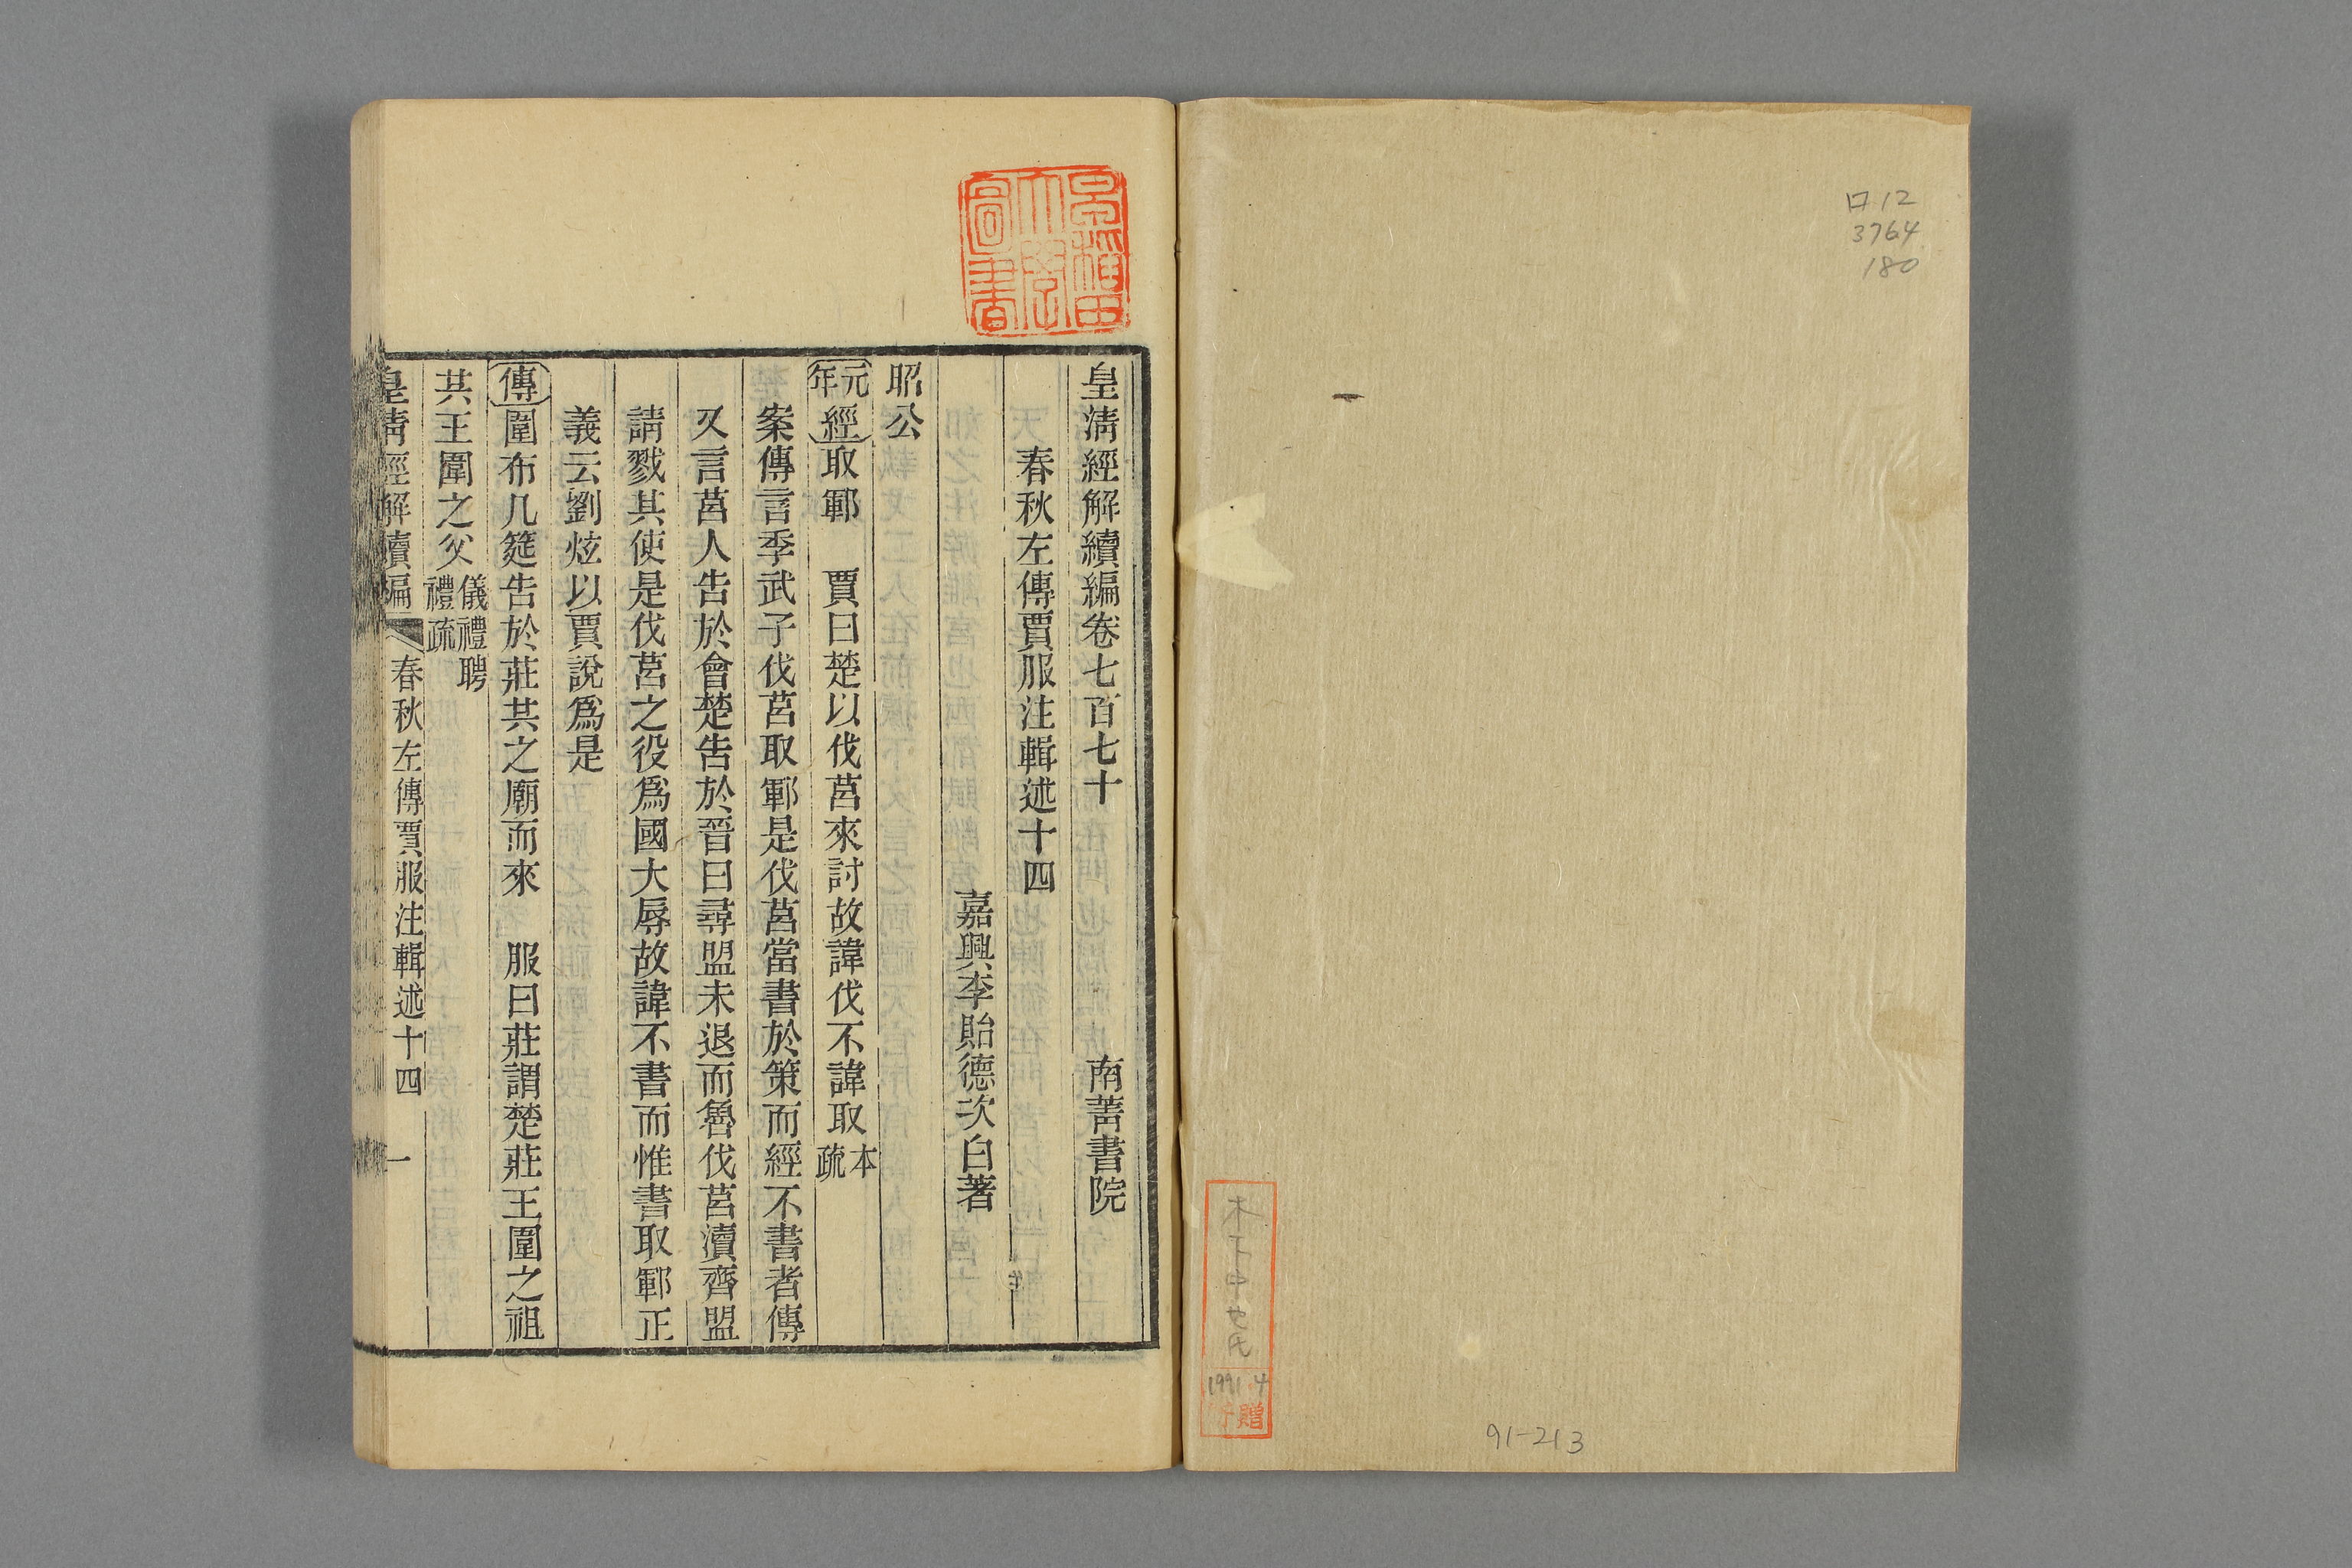 口12
3764
180
木下中也氏
1991.4
贈
91-213
早稲田
大學
圖書
皇清經解續編卷七百七十 南菁書院
春秋左傳賈服注輯述十四
嘉興李貽德次白著
昭公
元年經取鄆 賈曰楚以伐莒來討故諱伐不諱取本疏
案傳言季武子伐莒取鄆是伐莒當書於策而經不書者傳
又言莒人告於會楚告於晉曰尋盟未退而魯伐莒瀆齊盟
請戮其使是伐莒之役爲國大辱故諱不書而惟書取鄆正
義云劉炫以賈說爲是
傳圍布几筵告於莊共之廟而來 服曰莊謂楚莊王圍之祖
共王圍之父儀禮聘禮疏
皇清經解續編 春秋左傳賈服注輯述十四 一